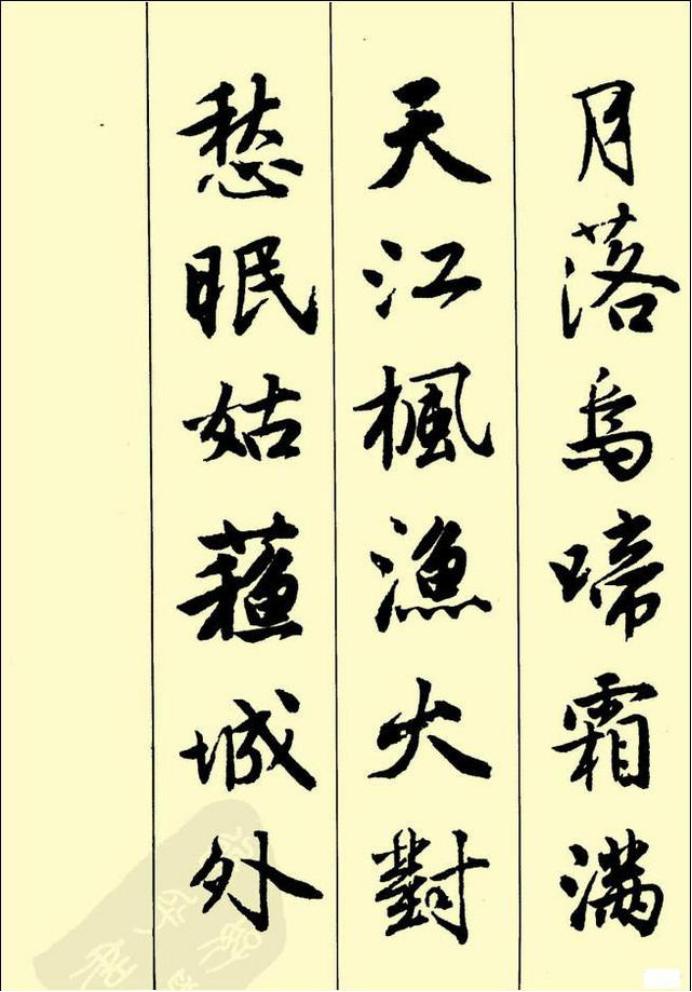 月落烏啼霜滿
天江楓漁火對
愁眠姑蘇城外